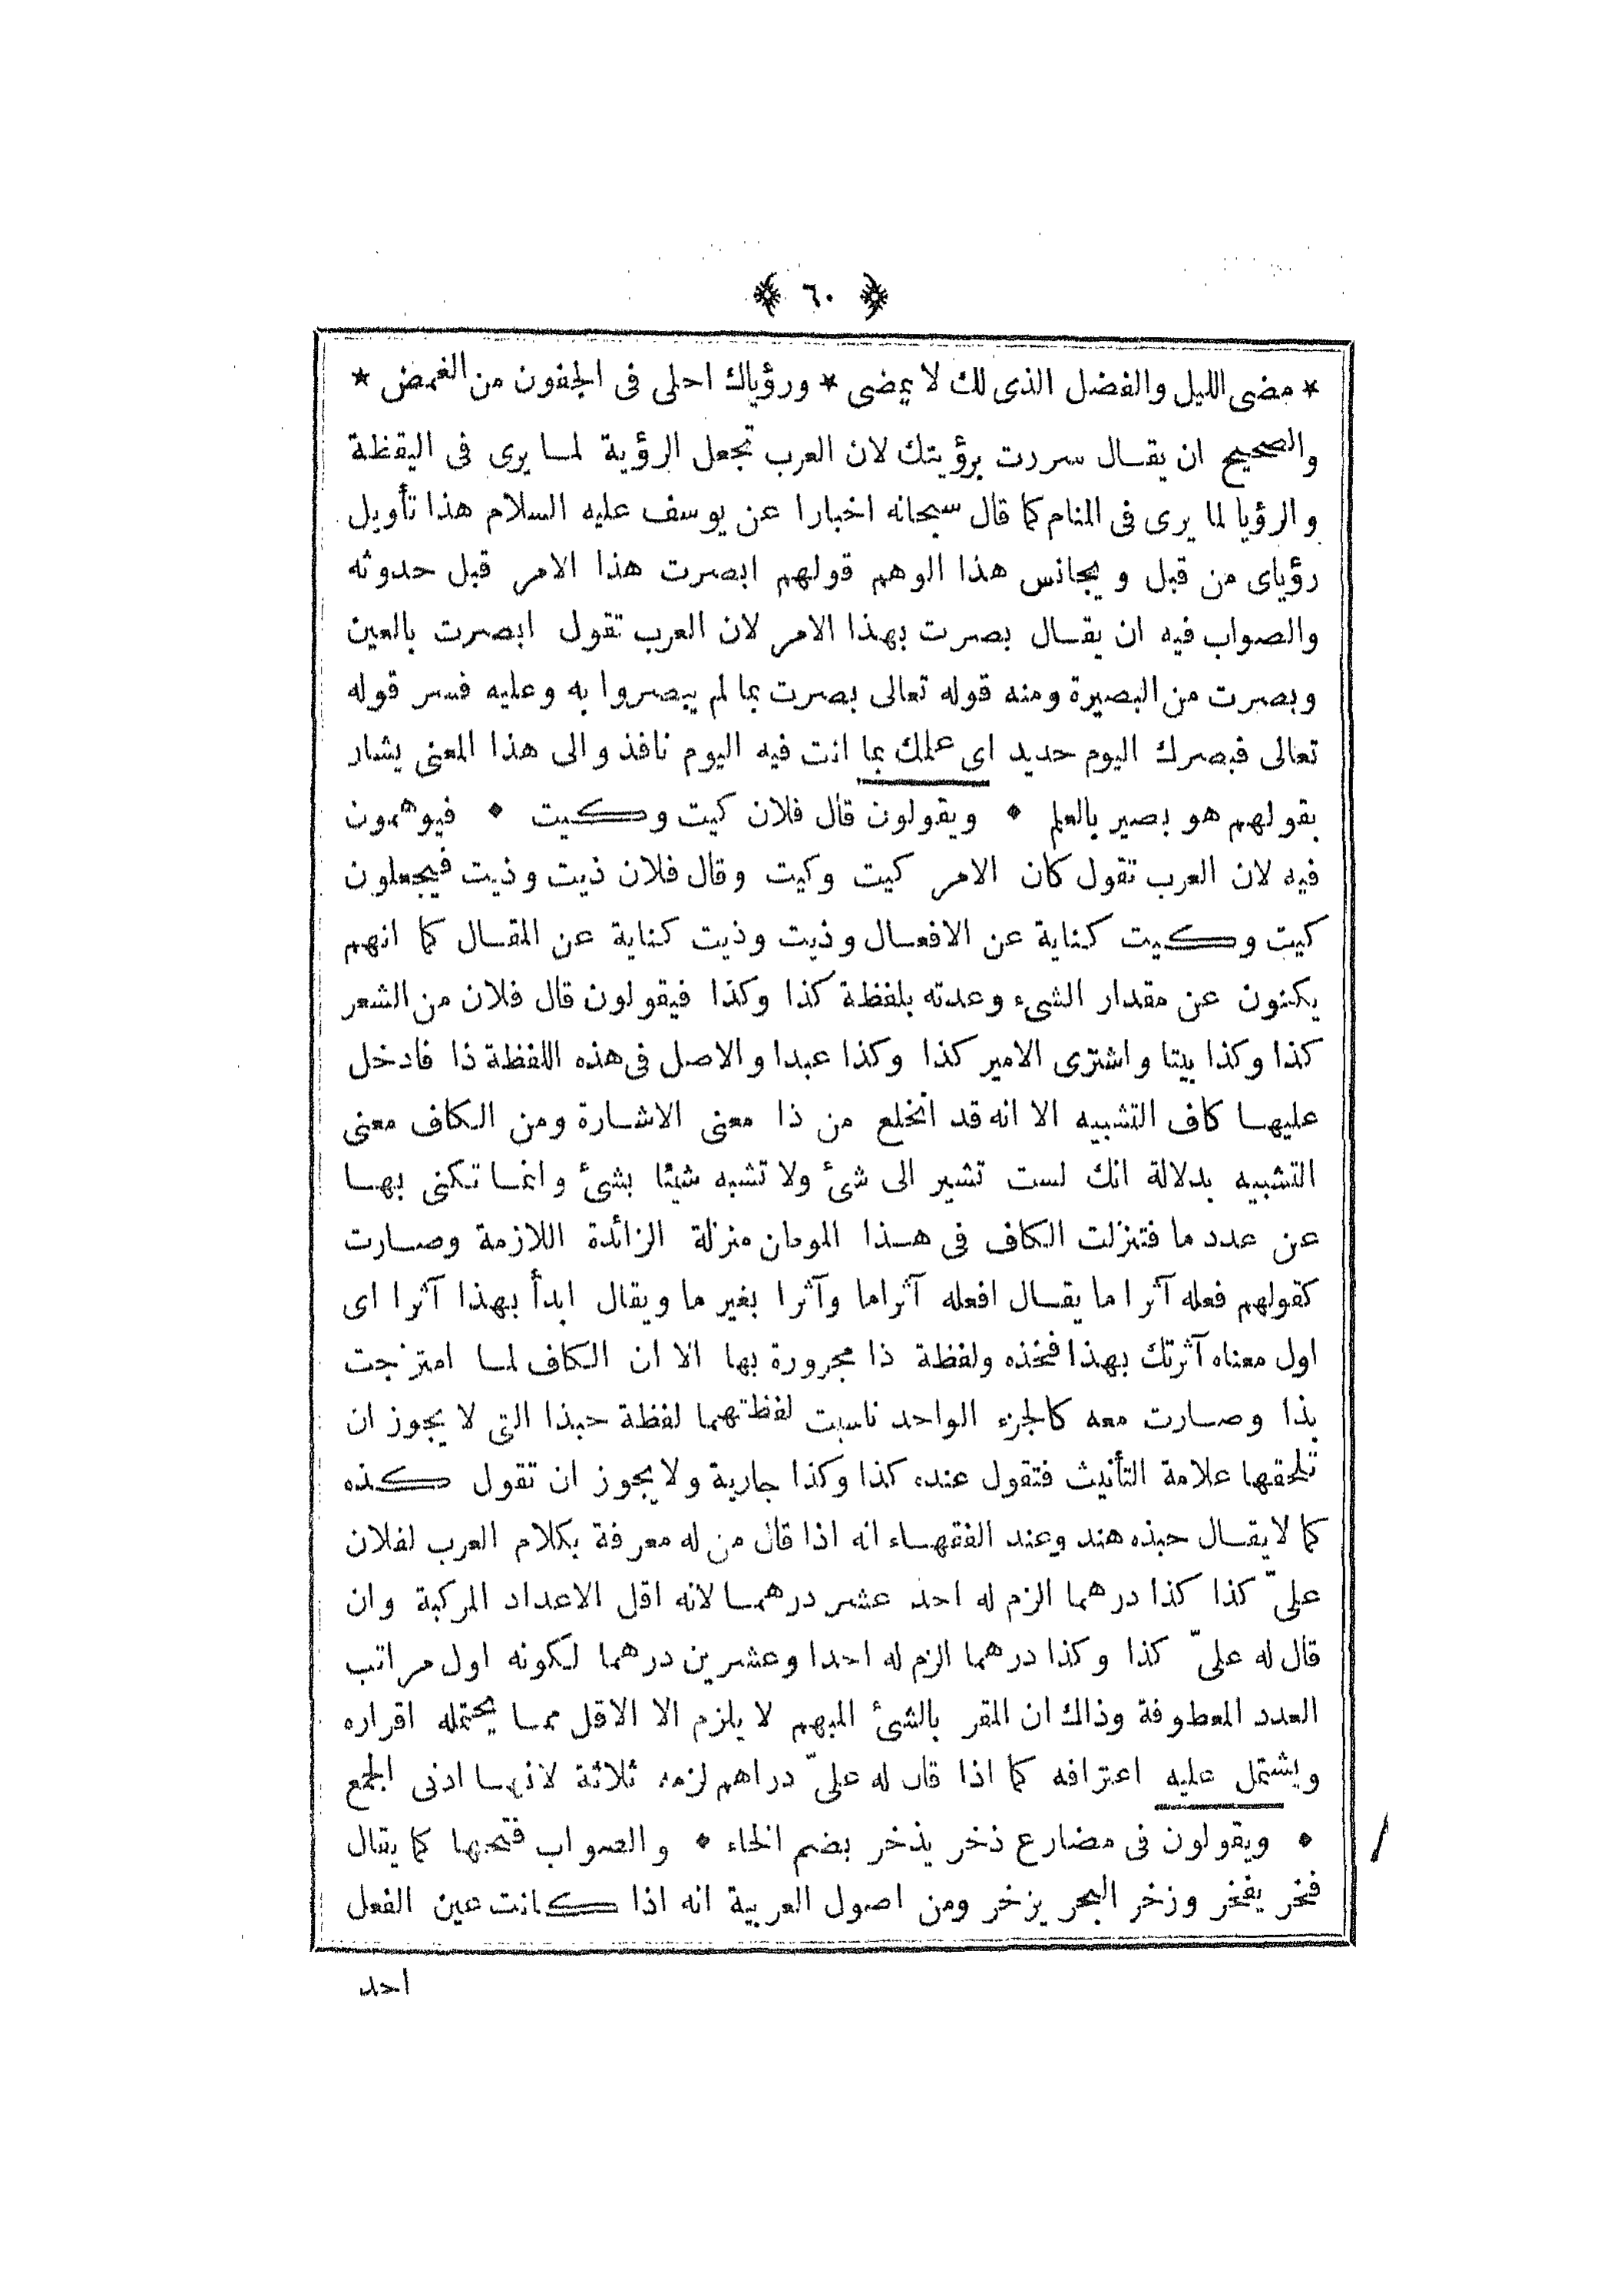 ﴿ ٦٠ ﴾
* مضى الليل والفضل الذى لك لا يمضى * ورؤياك احلى فى الجفون من الغمض *
والصحيح ان يقال سررت برؤيتك لان العرب تجعل الرؤية لما يرى فى اليقظة
والرؤيا لما يرى فى المنام كما قال سبحانه اخبارا عن يوسف عليه السلام هذا تأويل
رؤياى من قبل ويجانس هذا الوهم قولهم ابصرت هذا الامر قبل حدوثه
والصواب فيه ان يقال بصرت بهذا الامر لان العرب تقول ابصرت بالعين
وبصرت من البصيرة ومنه قوله تعالى بصرت بما لم يبصروا به وعليه فسر قوله
تعالى فبصرك اليوم حديد اى علمك بما انت فيه اليوم نافذ والى هذا المعنى يشار
بقولهم هو بصير بالعلم * ويقولون قال فلان كيت وكيت * فيوهمون
فيه لان العرب تقول كان الامر كيت وكيت وقال فلان ذيت وذيت فيجعلون
كيت وكيت كناية عن الافعال وذيت وذيت كناية عن المقال كما انهم
يكنون عن مقدار الشىء وعدته بلفظة كذا وكذا فيقولون قال فلان من الشعر
كذا وكذا بيتا واشترى الامير كذا وكذا عبدا والاصل فى هذه اللفظة ذا فادخل
عليها كاف التشبيه الا انه قد انخلع من ذا معنى الاشارة ومن الكاف معنى
التشبيه بدلالة انك لست تشير الى شئ ولا تشبه شيئا بشئ وانما تكنى بها
عن عدد ما فتنزلت الكاف فى هذا الموطن منزلة الزائدة اللازمة وصارت
كقولهم فعله آثرا ما يقال افعله آثراما وآثرا بغير ما ويقال ابدأ بهذا آثرا اى
اول معناه آثرتك بهذا فخذه ولفظة ذا مجرورة بها الا ان الكاف لما امتزجت
بذا وصارت معه كالجزء الواحد ناسبت لفظتهما لفظة حبذا التى لا يجوز ان
تلحقها علامة التأنيث فتقول عنده كذا وكذا جارية ولا يجوز ان تقول كذه
كما لا يقال حبذه هند وعند الفقهاء انه اذا قال من له معرفة بكلام العرب لفلان
علىّ كذا كذا درهما الزم له احد عشر درهما لانه اقل الاعداد المركبة وان
قال له علىّ كذا وكذا درهما الزم له احدا وعشرين درهما لكونه اول مراتب
العدد المعطوفة وذاك ان المقر بالشئ المبهم لا يلزم الا الاقل مما يحتمله اقراره
ويشتمل عليه اعترافه كما اذا قال له علىّ دراهم لزمه ثلاثة لانها ادنى الجمع
* ويقولون فى مضارع ذخر يذخر بضم الخاء * والصواب فتحها كما يقال
فخر يفخر وزخر البحر يزخر ومن اصول العربية انه اذا كانت عين الفعل
احد